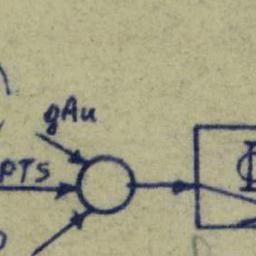 gAu
PTS
Φ